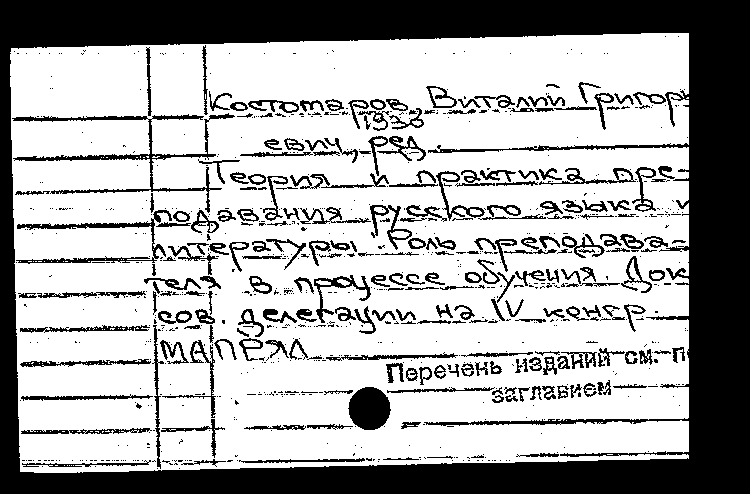 Костомаров, Виталий Григорь
1930
евич, ред.
Теория и практика пре-
подавания русского языка и
литературы. Роль преподава-
теля в процессе обучения. Док
сов. делегации на IV конгр.
МАПРЯЛ
Перечень изданий см. п
заглавием